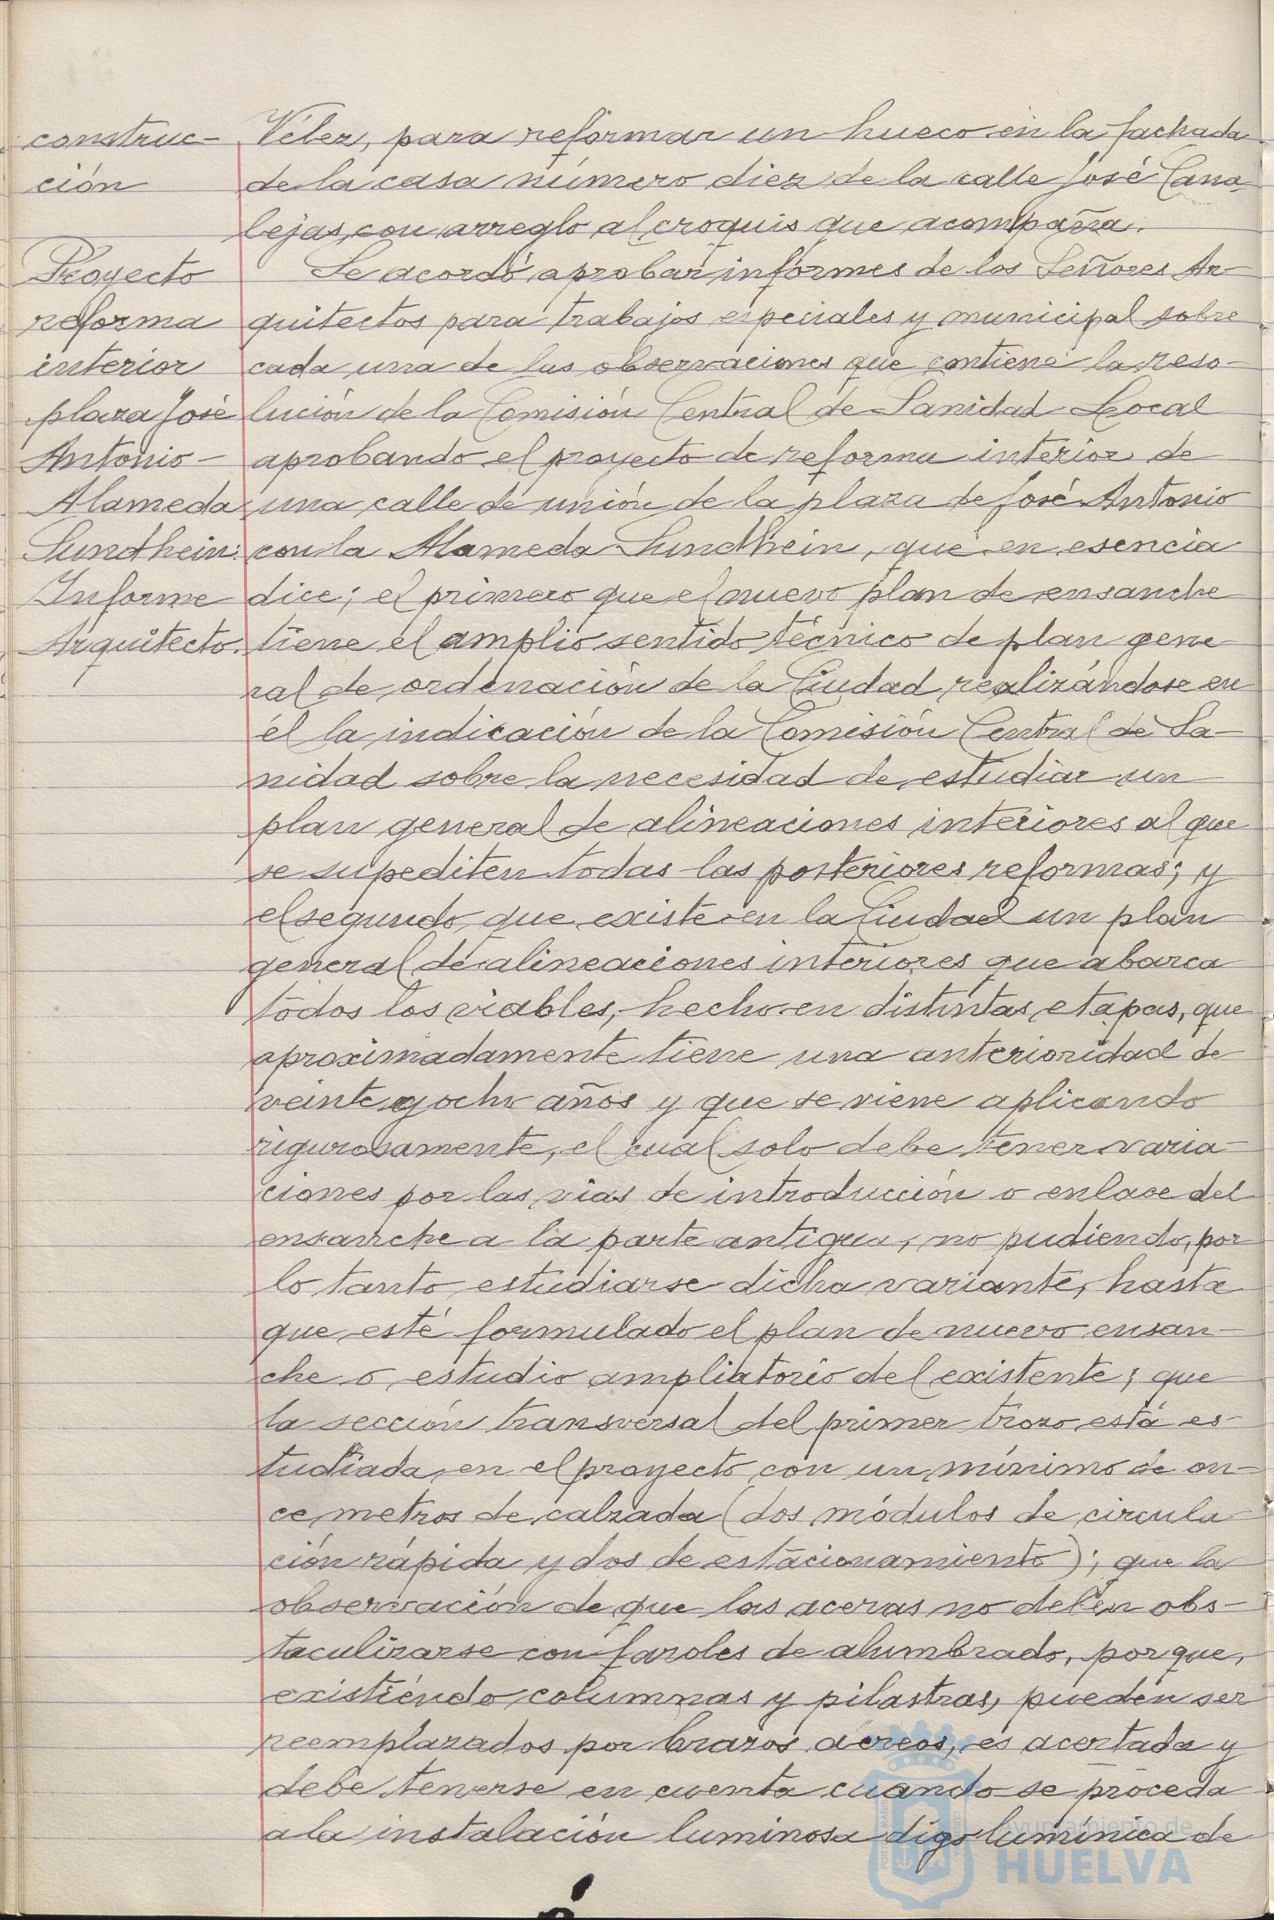 construc-
ción
Proyecto
reforma
interior
plaza José
Antonio-
Alameda
Sundhein:
Informe
Arquitecto.
Vélez, para reformar un hueco en la fachada
de la casa número diez de la calle José Cana-
lejas, con arreglo al croquis que acompaña.
Se acordó aprobar informes de los Señores Ar-
quitectos para trabajos especiales y municipal sobre
cada una de las observaciones que contiene la reso-
lución de la Comisión Central de Sanidad Local
aprobando el proyecto de reforma interior de
una calle de unión de la plaza de José Antonio
con la Alameda Sundhein, que en esencia
dice; el primero que el nuevo plan de ensanche
tiene el amplio sentido técnico de plan gene
ral de ordenación de la Ciudad realizándose en
él la indicación de la Comisión Central de Sa-
nidad sobre la necesidad de estudiar un
plan general de alineaciones interiores al que
se supediten todas las posteriores reformas; y
el segundo, que existe en la Ciudad un plan
general de alineaciones interiores que abarca
todos los viables, hecho en distintas etapas, que
aproximadamente tiene una anterioridad de
veinte y ocho años y que se viene aplicando
rigurosamente, el cual solo debe tener varia-
ciones por las vias de introducción o enlace del
ensanche a la parte antigua, no pudiendo, por
lo tanto estudiarse dicha variante, hasta
que esté formulado el plan de nuevo ensan-
che o estudio ampliatorio del existente; que
la sección transversal del primer trozo está es-
tudiada en el proyecto con un mínimo de on-
ce metros de calzada (dos módulos de circula
ción rápida y dos de estacionamiento); que la
observación de que las aceras no deben obs-
taculizarse con faroles de alumbrado, porque,
existiendo columnas y pilastras, pueden ser
reemplazados por brazos aéreos, es acertada y
debe tenerse en cuenta cuando se proceda
a la instalación luminosa digo lumínica de
Ayuntamiento de
HUELVA